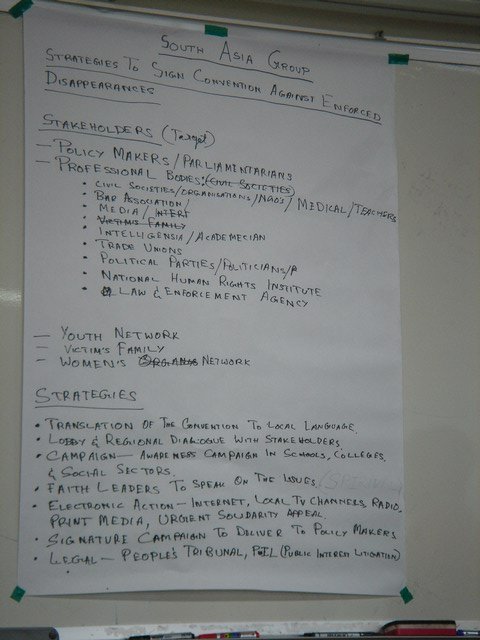 SOUTH ASIA GROUP
STRATEGIES TO SIGN CONVENTION AGAINST ENFORCED
DISAPPEARANCES
STAKEHOLDERS (Target)
— POLICY MAKERS/PARLIAMENTARIANS
— PROFESSIONAL BODIES, (CIVIL SOCIETIES)
• CIVIL SOCIETIES/ORGANISATIONS/NGOS/MEDICAL/TEACHERS
• BAR ASSOCIATION/
• MEDIA/INTERT
• VICTIM'S FAMILY
• INTELLIGENSIA/ACADEMECIAN
• TRADE UNIONS
• POLITICAL PARTIES/POLITICIANS/P
• NATIONAL HUMAN RIGHTS INSTITUTE
• LAW & ENFORCEMENT AGENCY
— YOUTH NETWORK
— VICTIM'S FAMILY
— WOMEN'S NETWORK
STRATEGIES
• TRANSLATION OF THE CONVENTION TO LOCAL LANGUAGE.
• LOBBY & REGIONAL DIALOGUE WITH STAKEHOLDERS
• CAMPAIGN — AWARENESS CAMPAIGN IN SCHOOLS, COLLEGES,
& SOCIAL SECTORS.
• FAITH LEADERS TO SPEAK ON THE ISSUES
• ELECTRONIC ACTION — INTERNET, LOCAL TV CHANNELS, RADIO
PRINT MEDIA, URGENT SOLIDARITY APPEAL
• SIGNATURE CAMPAIGN TO DELIVER TO POLICY MAKERS
• LEGAL — PEOPLE'S TRIBUNAL, PIL (PUBLIC INTEREST LITIGATION)
•